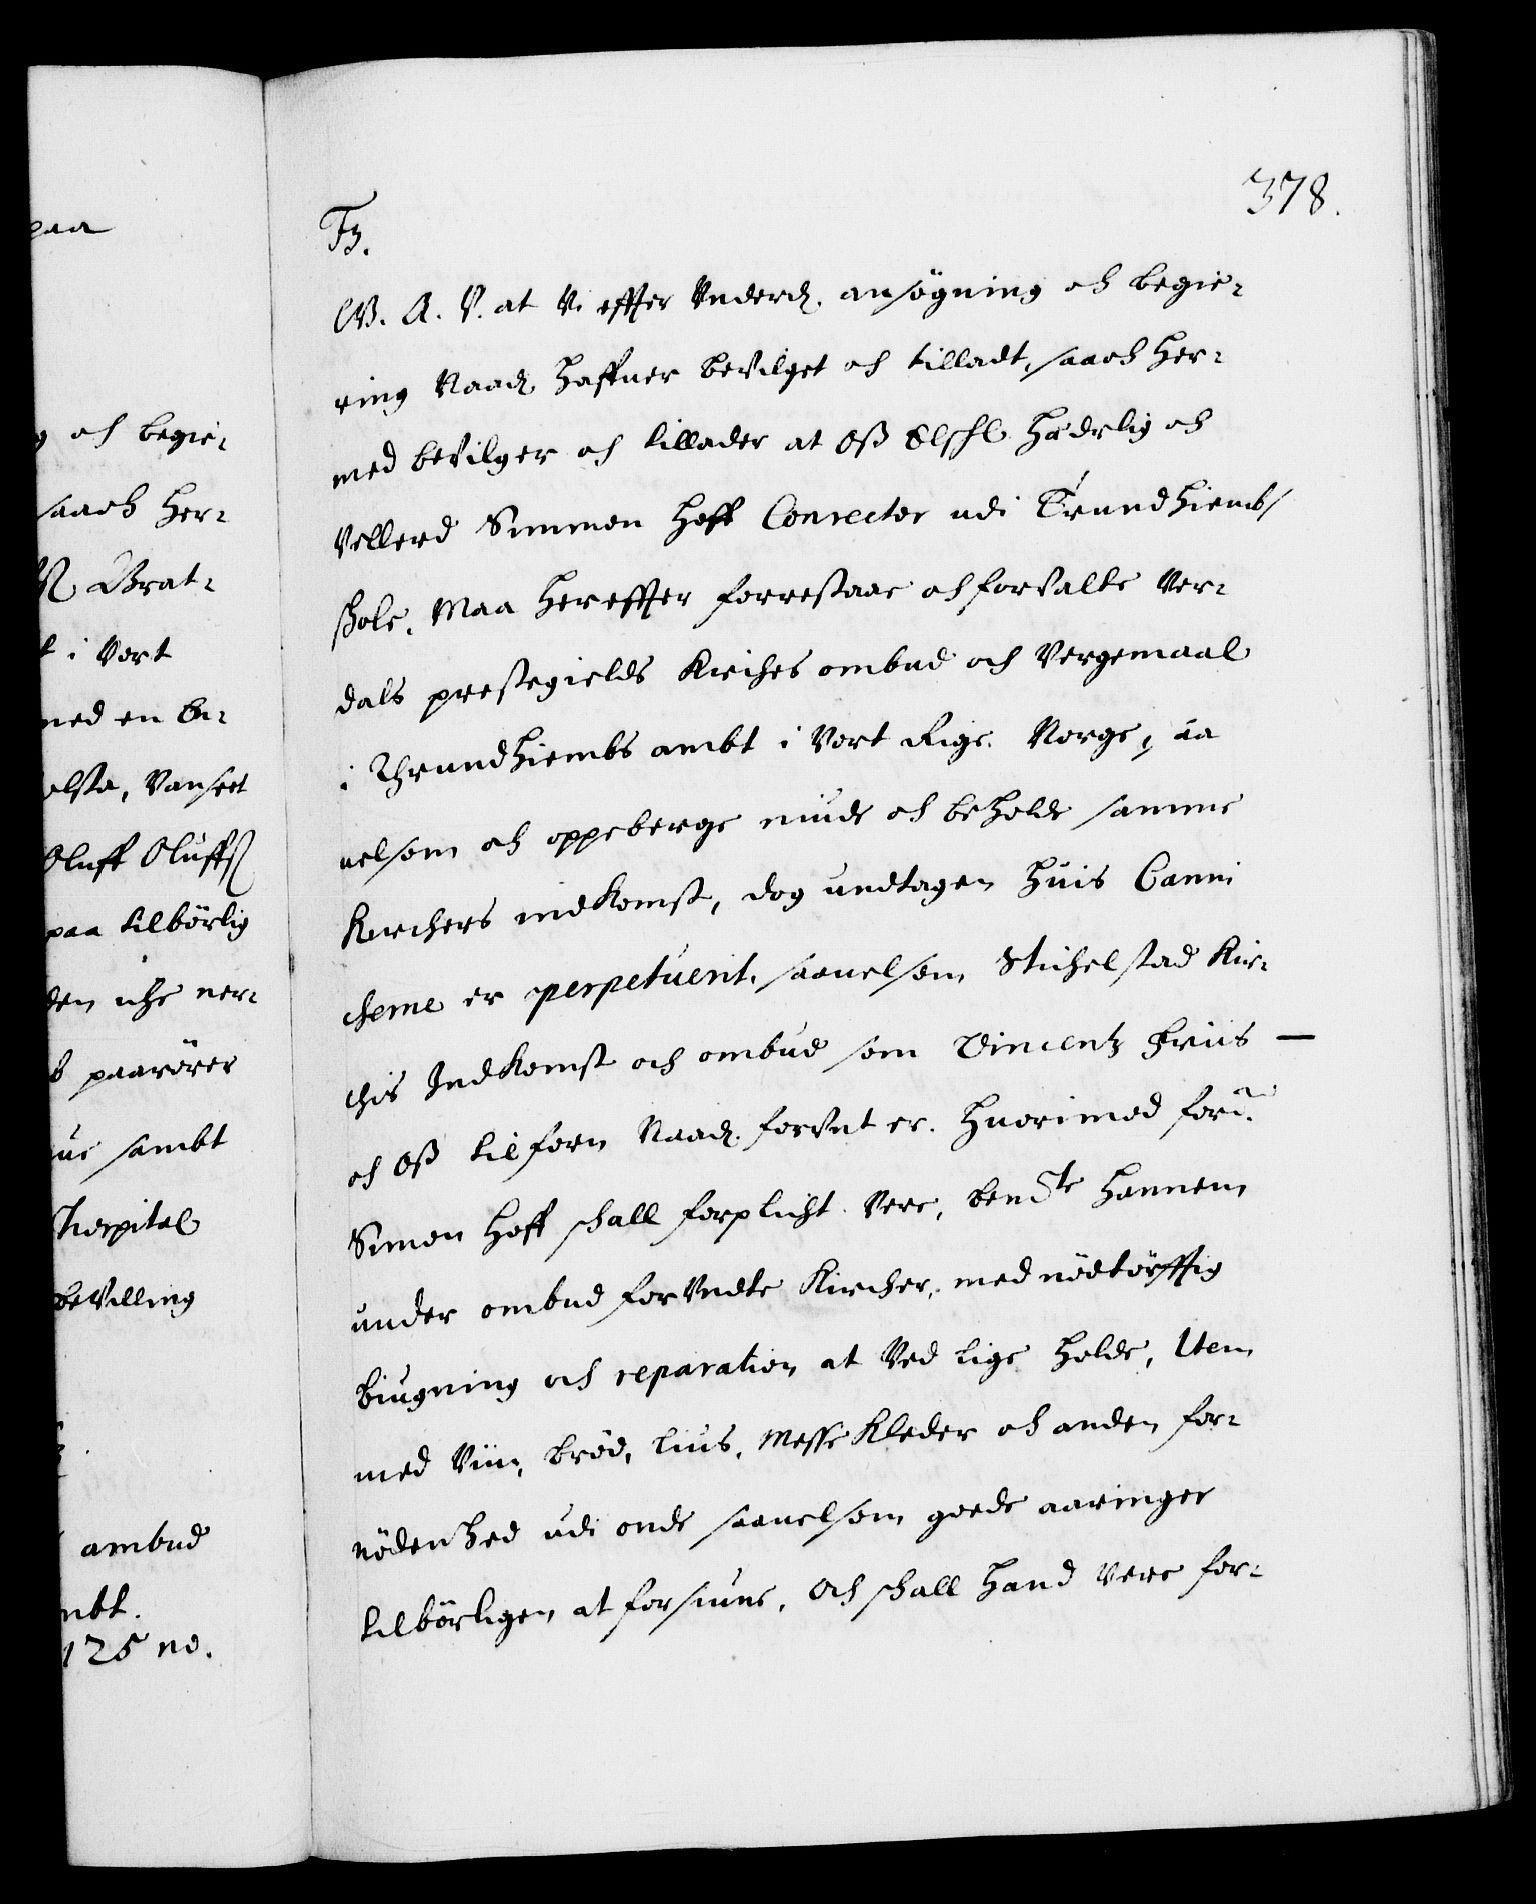 paa
g och begie-
saaoch her-
Brat-
t i Vort
med en bu-
olsta, Vanseet
Oluff Oluffs
paa tilbörlig
den iche ner-
paarörer
sambt
Hospital
beVilling
ambud
mbt.
125 no.
378.
F3.
W. A. V. at Vi effter Vnderd. ansögning och begie-
ring Naad haffuer beVilget och tilladt, saaoch her-
med beVilger och tillader at Oß Elschl. Hæderlig och
Vellerd Simmon Hoff Conrector udi Trundhiembs
schole, Maa hereffter forrestaae och forValte Ver-
dals prestegields Kirches ombud och Vergemaal
i Thrundhiembs ambt i Vort Rige Norge, saa
uelsom och oppeberge niude och beholde samme
Kirchers indKomst, dog undtagen huis Canni
cherne er perpetuerit, saauelsom Stichelstad Kir-
chis IndKomst och ombud som Vincentz Friis —
och Oß tilforn Naad. forVnt er. Huorimod for.ne
Simon Hoff schall forplicht Vere, bem.te hannem
under ombud forVndte Kircher, med nödtörfftig
biugning och reparation at Ved lige holde, Item
med Viin, brød, lius, MesseKleder och anden for-
nödenhed udi onde saauelsom goede aaringer
tilbörligen at forsiune, Och schall hand Vere for-